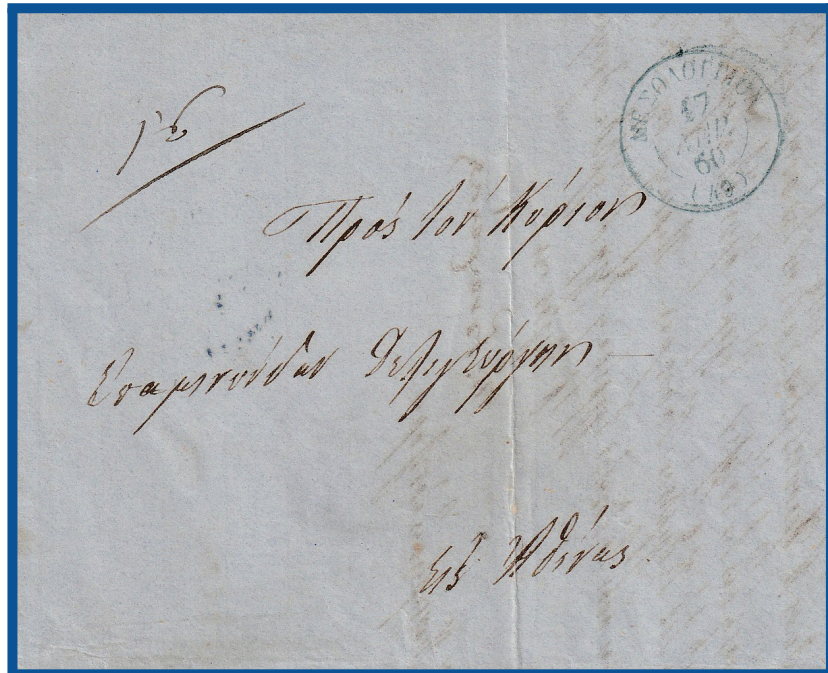 ΜΕΣΟΛΟΓΓΙΟΝ
17
ΑΠΡ.
60
(49)
Πρὸς τὸν Κύριον
Επαμινώνδαν Δεληγεώργην
Εἰς Ἀθήνας